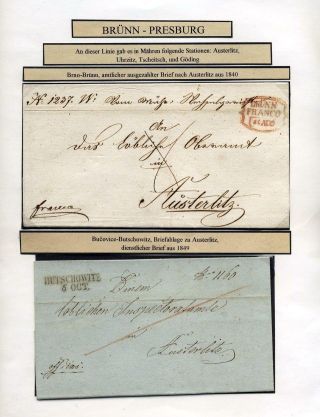 BRÜNN - PRESBURG
An dieser Linie gab es in Mähren folgende Stationen: Austerlitz,
Uhrzitz, Tscheitsch, und Göding
Brno-Brünn, amtlicher ausgezahlter Brief nach Austerlitz aus 1840
N: 1237. Vom
BRÜNN
FRANCO
An
Das löbliche Oberamt
zu
franco
Austerlitz
Bučovice-Butschowitz, Briefablage zu Austerlitz,
dienstlicher Brief aus 1849
BUTSCHOWITZ
6 OCT.
Einem
löblichen Inspectoratsamte
in
Austerlitz